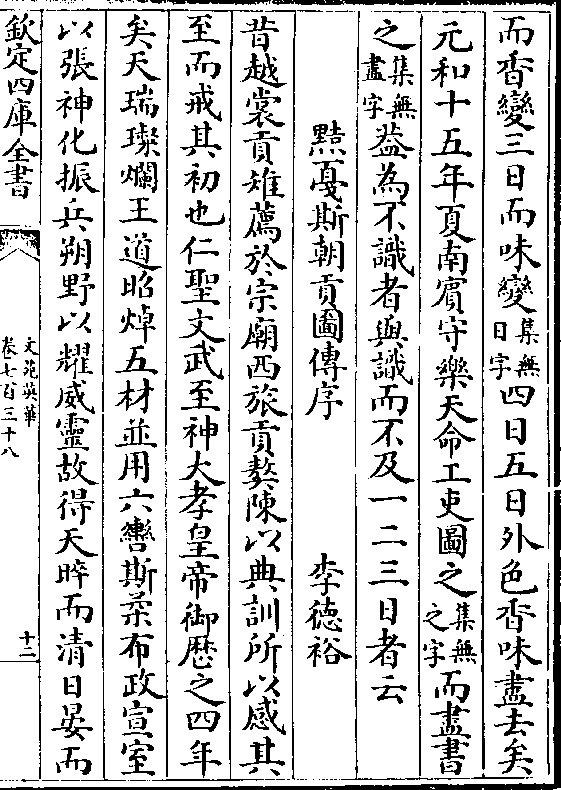 而香變三日而味變集無日字四日五日外色香味盡去矣
元和十五年夏南賓守樂天命工吏圖之集無之字而盡書
之集無盡字葢為不識者與識而不及一二三日者云
黠戛斯朝貢圖傳序 李德裕
昔越裳貢雉薦於宗廟西旅貢獒陳以典訓所以感其
至而戒其初也仁聖文武至神大孝皇帝御歴之四年
矣天瑞璨爛王道昭焯五材並用六轡斯柔布政宣室
以張神化振兵朔野以耀威靈故得天晬而清日晏而
欽定四庫全書
文苑英華
卷七百三十八
十二